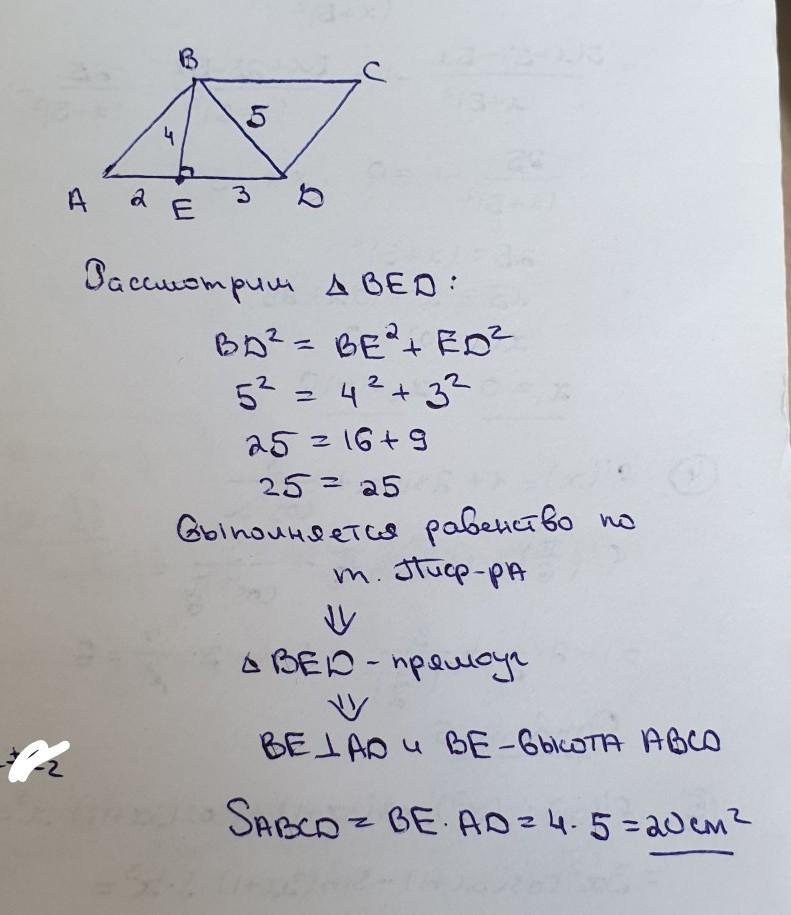 B C
4 5
A 2 E 3 D
Рассмотрим △ BED:
BD² = BE² + ED²
5² = 4² + 3²
25 = 16 + 9
25 = 25
Выполняется равенство по
т. Пиф-рА
⇓
△ BED - прямоуг
⇓
BE ⊥ AD и BE - высота ABCD
-2
SABCD = BE · AD = 4 · 5 = 20 см²